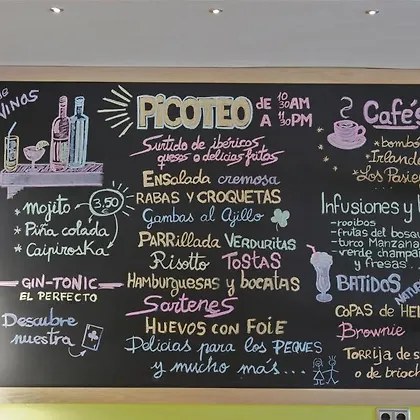 VINOS
* mojito 3,50
* Piña coláda
* Caipiroska
GIN-TONIC
EL PERFECTO
Descubre
nuestra
PICOTEO DE 10 30AM
A 11 30PM
Surtido de ibéricos
quesos o delicias fritas
ENSalada cremosa
RABAS Y CROQUETAS
Gambas al Ajillo
PARRillada VERDURITAS
Risotto TOSTAS
Hamburguesas y bocatas
Sartenes
HUEVOS CON FOIE
Delicias para los PEQUES
y mucho más...
Cafés
* bombó
* Irlande
* Los Pasie
Infusiones y
- rooibos
- frutas del bosqu
- turco Manzana
- verde champa
y fresas
BATIDOS NATUR
COPAS DE HEL
Brownie
TORRIJA de s
o de brioch